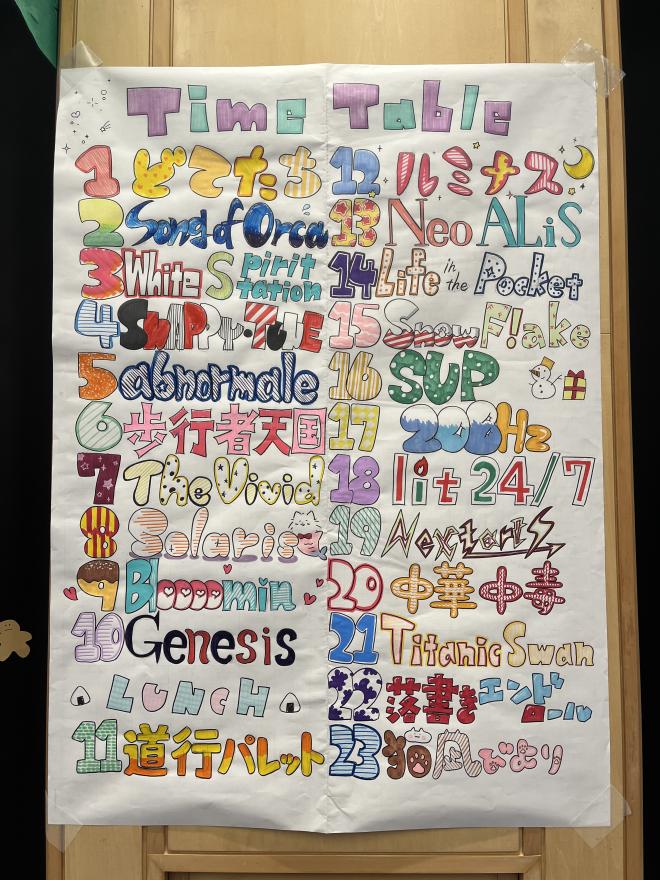 Time Table
1 どてたち
2 Song of Orca
3 White Spirit
tation
4
5 abnormale
6 歩行者天国
7 The Vivid
8 Solaris
9 Blooooomin
10 Genesis
LUNCH
11 道行パレット
12 ルミナス
13 Neo ALiS
14 Life in the Pocket
15 Snow F!ake
16 SUP
17 200Hz
18 lit 24/7
19
20 中華中毒
21 Titanic Swan
22 落書きエンドロール
23 びより